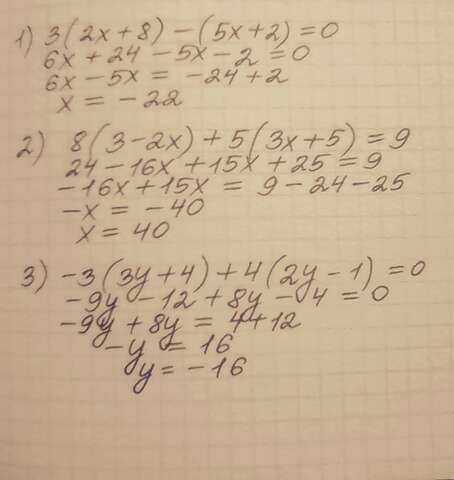 1) 3(2x+8)-(5x+2)=0
6x+24-5x-2=0
6x-5x=-24+2
x=-22
2) 8(3-2x)+5(3x+5)=9
24-16x+15x+25=9
-16x+15x=9-24-25
-x=-40
x=40
3) -3(3y+4)+4(2y-1)=0
-9y-12+8y-4=0
-9y+8y=4+12
-y=16
y=-16